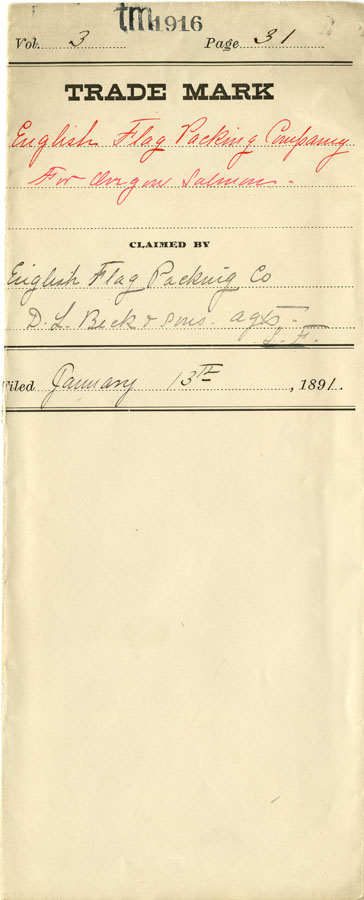 tm1916
Vol. 3 Page 31
TRADE MARK
English Flag Packing Company
For Oregon Salmon.
CLAIMED BY
English Flag Packing Co
D. L. Beck & Sons. agts.
S. F.
Filed January 13TH, 1891.